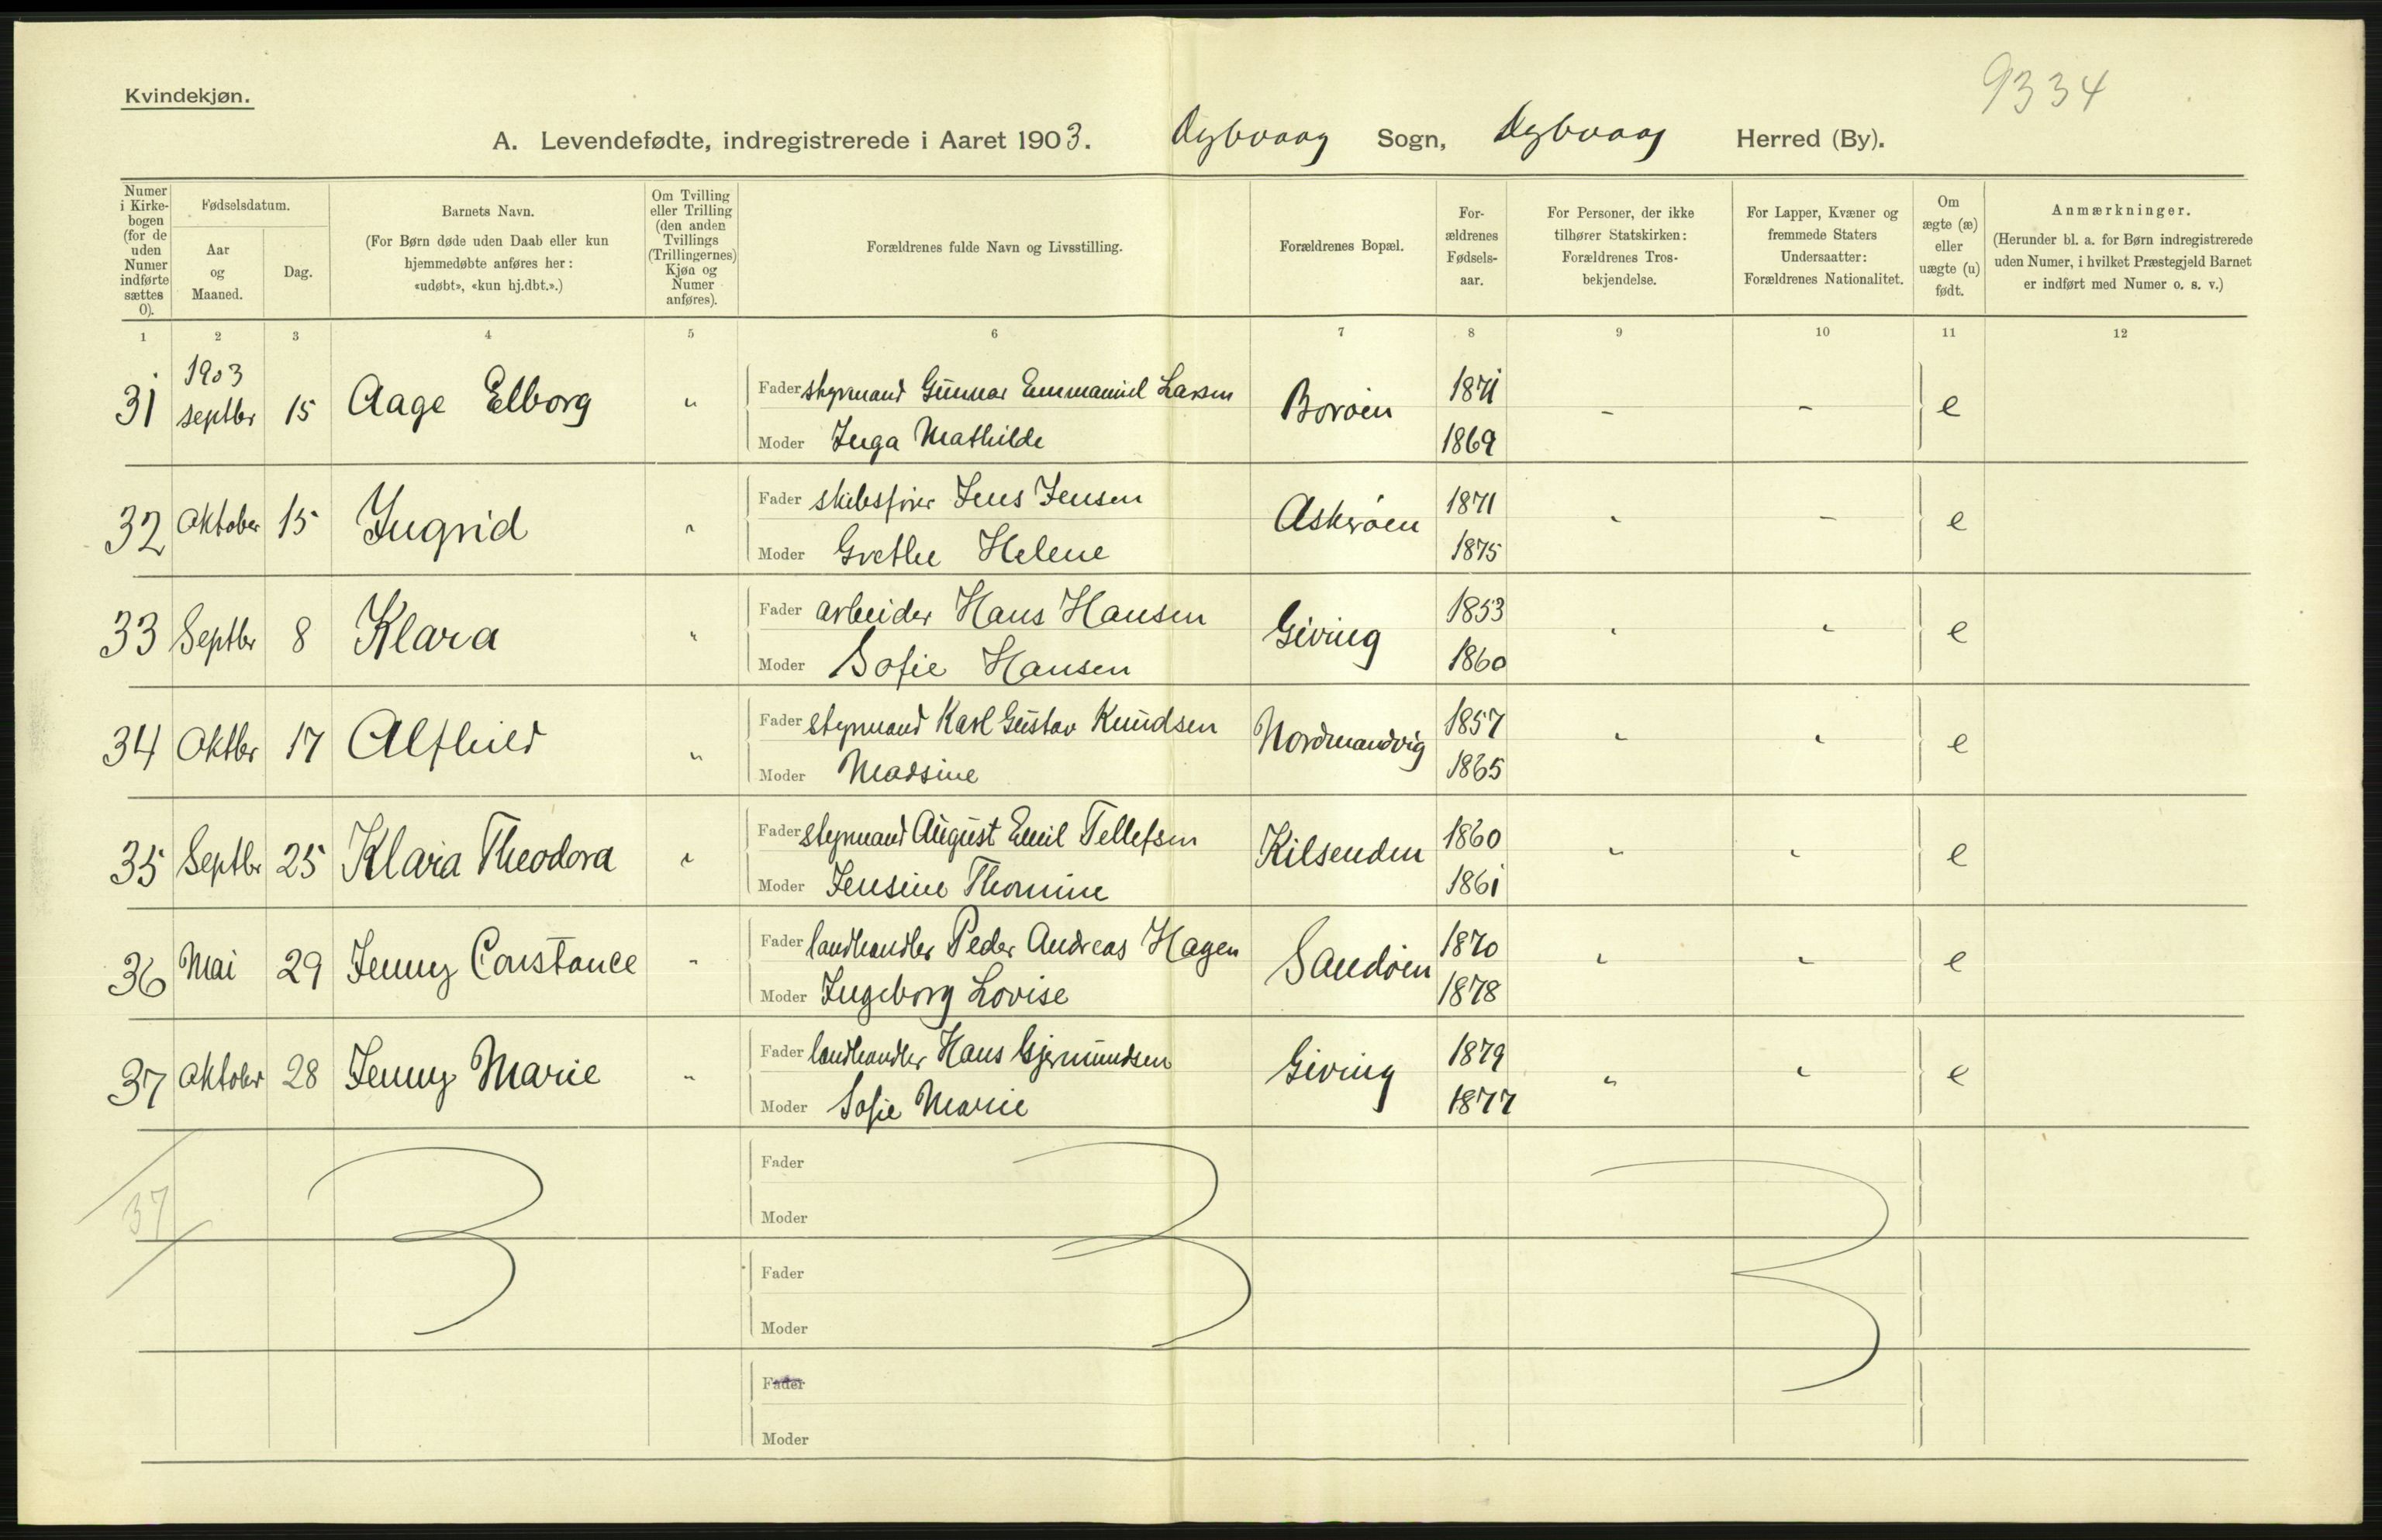 9334
Kvindekjøn.
A. Levendefødte, indregistrerede i Aaret 1903. Dybvaag Sogn, Dybvaag Herred (By).
Numer i Kirkebogen (for de uden Numer indførte sættes 0).
Fødselsdatum.
Aar og Maaned.
Dag.
Barnets Navn.
(For Børn døde uden Daab eller kun hjemmedøbte anføres her: «udøbt», «kun hj.dbt.».)
Om Tvilling eller Trilling (den anden Tvillings (Trillingernes) Kjøn og Numer anføres).
Forældrenes fulde Navn og Livsstilling.
Forældrenes Bopæl.
Forældrenes Fødselsaar.
For Personer, der ikke tilhører Statskirken: Forældrenes Trosbekjendelse.
For Lapper, Kvæner og fremmede Staters Undersaatter: Forældrenes Nationalitet.
Om ægte (æ) eller uægte (u) født.
Anmærkninger.
(Herunder bl. a. for Børn indregistrerede uden Numer, i hvilket Præstegjeld Barnet er indført med Numer o. s. v.)
1 2 3 4 5 6 7 8 9 10 11 12
31 1903 septbr 15 Aage Elborg " Fader styrmand Gunnar Emmanuel Larsen Borøen 1871 - - e
Moder Inga Mathilde 1869
32 Oktober 15 Ingrid " Fader skibsfører Jens Jensen Askerøen 1871 " - e
Moder Grethe Helene 1875
33 Septbr 8 Klara " Fader arbeider Hans Hansen Giving 1853 " " e
Moder Sofie Hansen 1860
34 Oktbr 17 Alfhild " Fader styrmand Karl Gustav Knudsen Nordmandvig 1857 " " e
Moder Madsine 1865
35 Septbr 25 Klara Theodora " Fader styrmand August Emil Tellefsen Kilsenden 1860 " " e
Moder Jensine Thomine 1861
36 Mai 29 Jenny Constance " Fader landhandler Peder Andreas Hagen Sandøen 1870 " " e
Moder Ingeborg Lovise 1878
37 Oktober 28 Jenny Marie " Fader landhandler Hans Gjermundsen Giving 1879 " " e
Moder Sofie Marie 1877
Fader
37
Moder
Fader
Moder
Fader
Moder